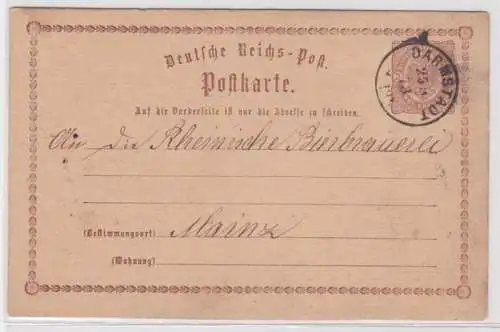 Deutsche Reichs-Post.
Postkarte.
DARMSTADT
Auf die Vorderseite ist nur die Adresse zu schreiben.
An die Rheinische Bierbrauerei
(Bestimmungsort) Mainz
(Wohnung)